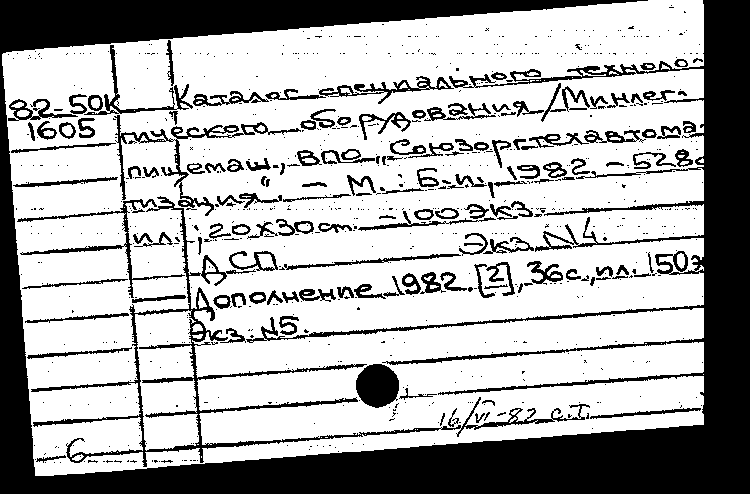 82-50К Каталог специального техноло-
1605 гического оборудования / Минлег-
пищемаш., ВПО „Союзоргтехавтома-
тизация“. – М.: Б.и., 1982. – 528с
ил.; 20х30см. – 100 экз.
ДСП. Экз. N4.
Дополнение 1982. [2], 36с., ил. 150э
Экз. N5.
16/VI-82 С.Т.
6